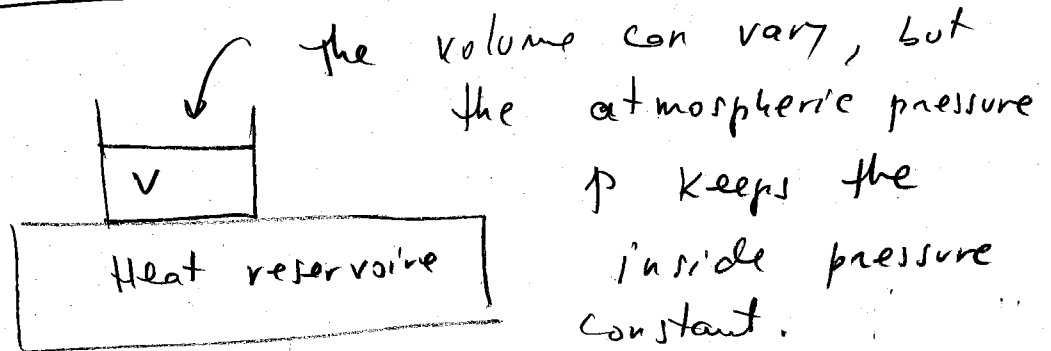 the volume can vary, but
the atmospheric pressure
p keeps the
inside pressure
constant.
V
Heat reservoire